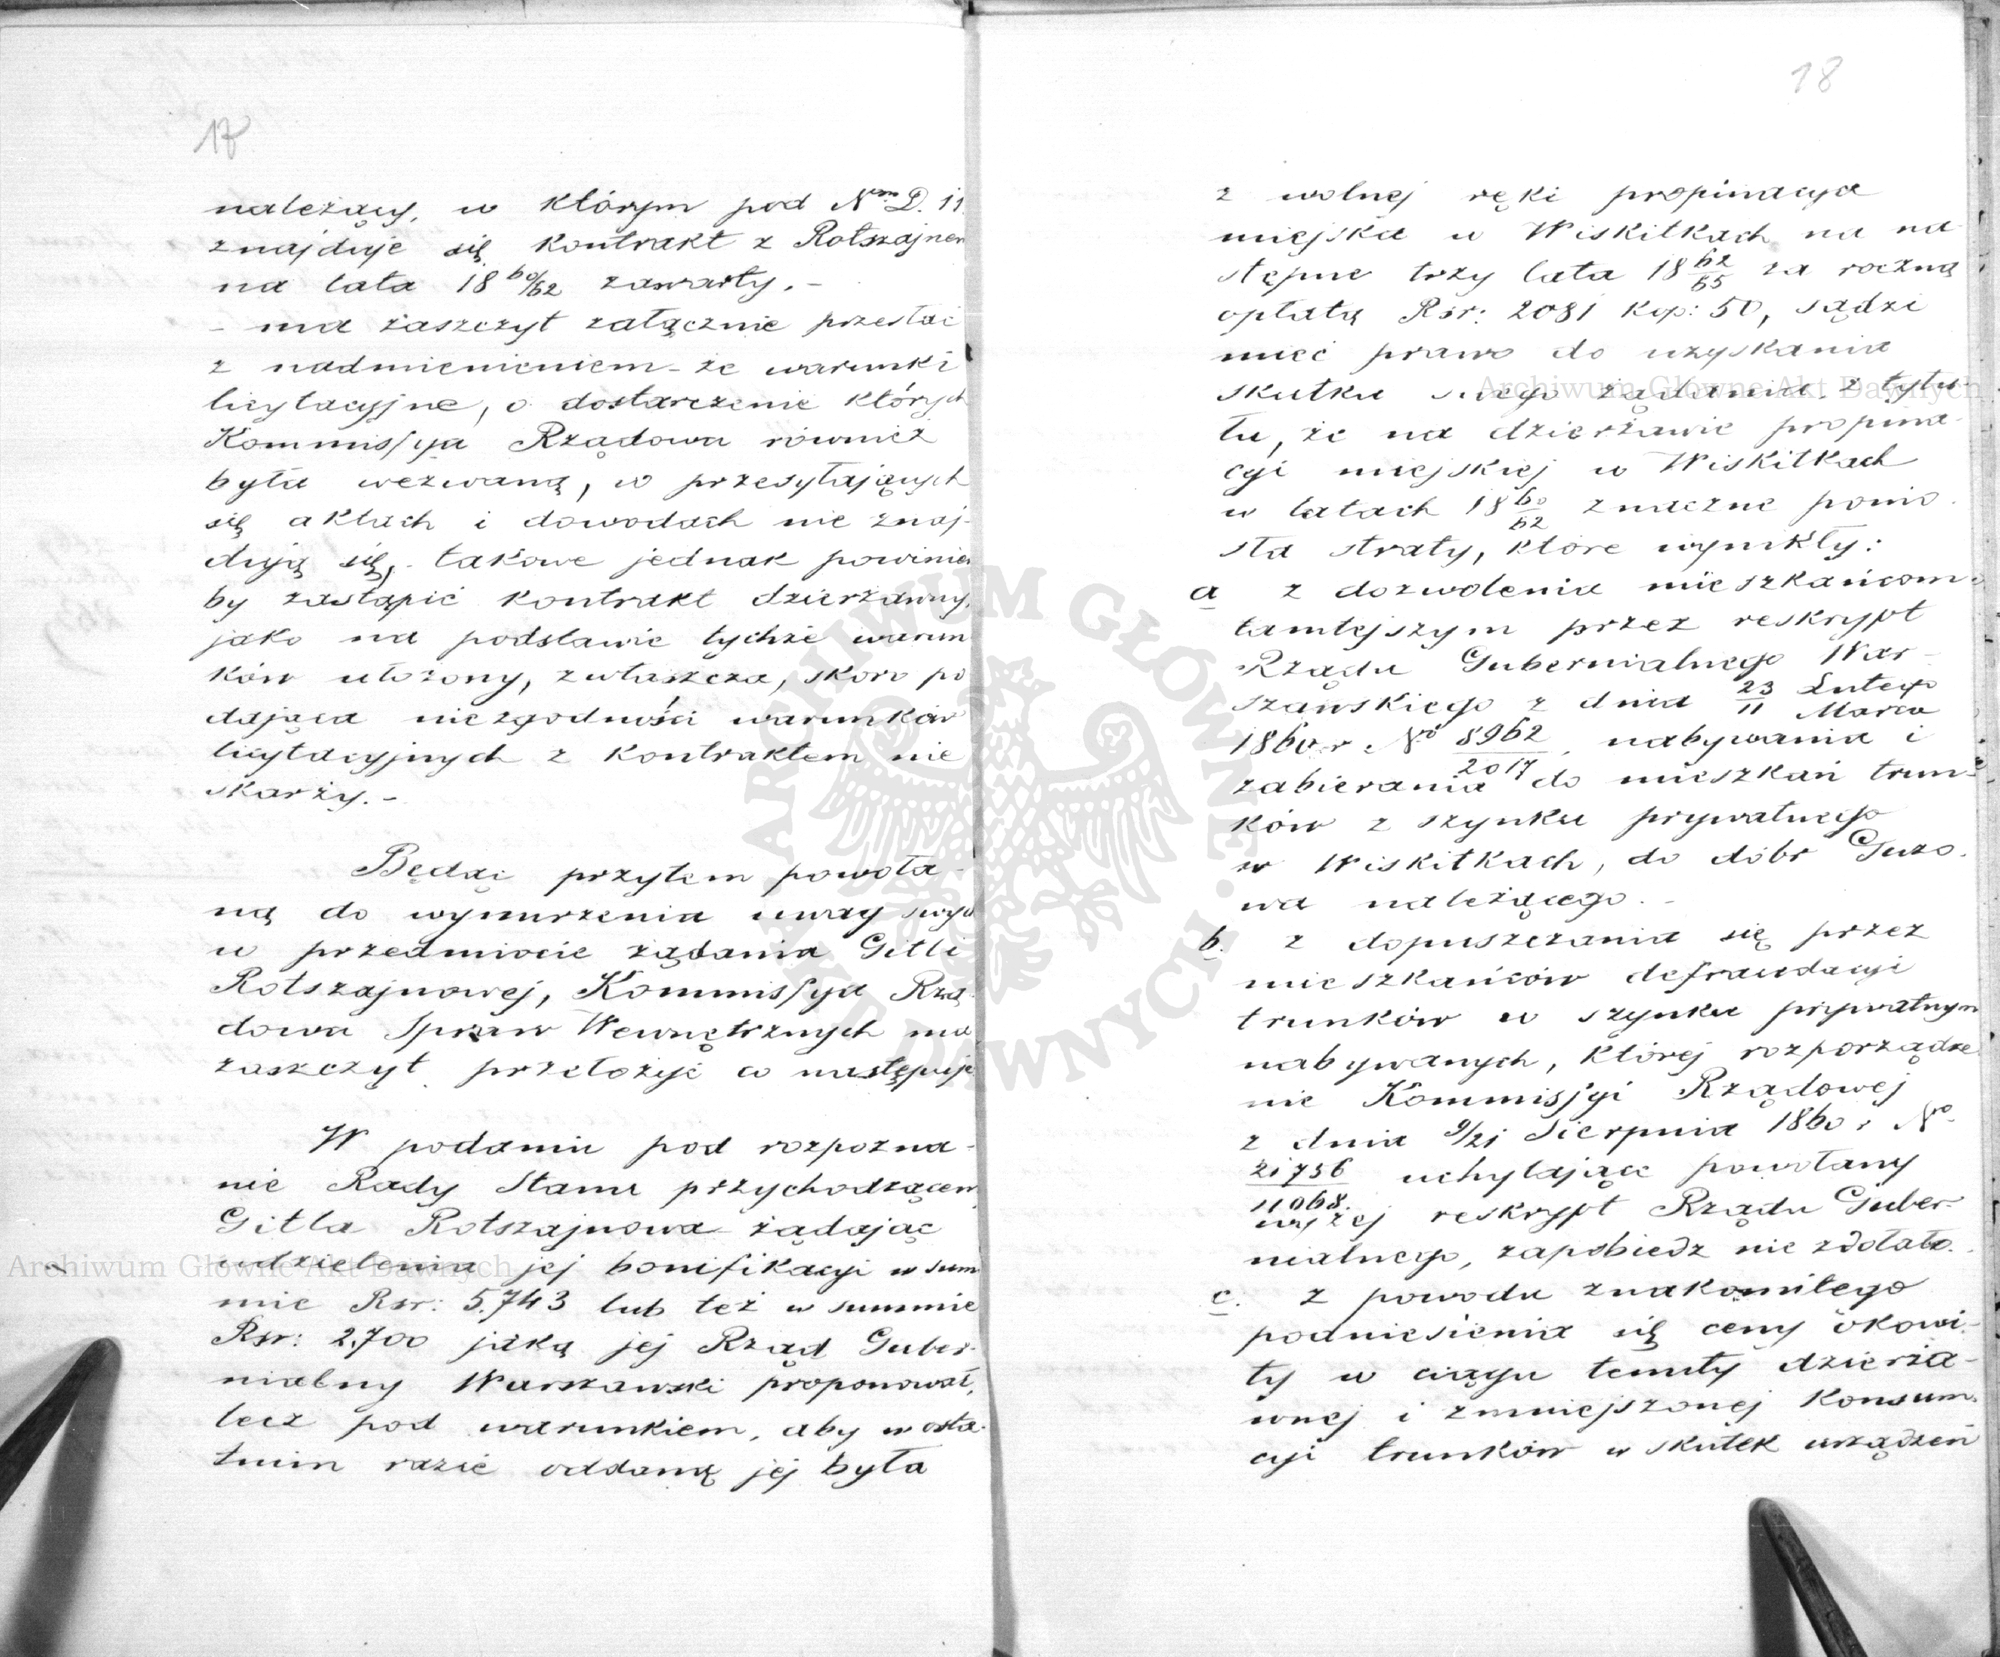 17
należący, w którym pod Nrem D. 11
znajduje się kontrakt z Rotszajnem
na lata 18 60/62 zawarty. –
– ma zaszczyt załącznie przesłać
z nadmienieniem – że warunki
licytacyjne, o dostarczenie których
Kommissya Rządowa również
była wezwaną, w przesyłających
się aktach i dowodach nie znaj-
dują się, – takowe jednak powinien
by zastąpić kontrakt dzierżawny,
jako na podstawie tychże warun
ków ułożony, zwłaszcza, skoro po
dająca niezgodności warunków
licytacyjnych z kontraktem nie
skarży. –
Będąc przytem powoła-
ną do wynurzenia uwag swych
w przedmiocie żądania Gitli
Rotszajnowej, Kommissya Rzą-
dowa Spraw Wewnętrznych ma
zaszczyt przełożyć co następuje
W podaniu pod rozpozna-
nie Rady Stanu przychodzącem
Gitla Rotszajnowa żądając
udzielenia jej bonifikacyi w sum
mie Rsr: 5.743 lub też w summie
Rsr: 2.700 jaką jej Rząd Guber-
nialny Warszawski proponował,
lecz pod warunkiem, aby w osta-
tnim razie oddaną jej była
18
z wolnej ręki propinacya
miejska w Wiskitkach na na-
stępne trzy lata 18 62/65 za roczną
opłatą Rsr: 2081 kop: 50, sądzi
mieć prawo do uzyskania
skutku swego żądania z tytu-
łu, że na dzierżawie propina-
cyi miejskiej w Wiskitkach
w latach 18 60/62 znaczne ponio-
sła straty, które wynikły:
a z dozwolenia mieszkańcom
tamtejszym przez reskrypt
Rządu Gubernialnego War-
szawskiego z dnia 23 Lutego / 11 Marca
1860 r No 8962/2017 nabywania i
zabierania do mieszkań trun-
ków z szynku prywatnego
w Wiskitkach, do dóbr Guzo-
wa należącego. –
b. z dopuszczania się przez
mieszkańców defraudacyi
trunków w szynku prywatnym
nabywanych, której rozporządze
nie Kommissyi Rządowej
z dnia 9/21 Sierpnia 1860 r No
21736/11068 uchylające powołany
wyżej reskrypt Rządu Guber-
nialnego, zapobiedz nie zdołało.
c. z powodu znakomitego
podniesienia się ceny okowi-
ty w ciągu tenuty dzierża-
wnej i zmniejszonej konsum-
cyi trunków w skutek urządzeń
Archiwum Główne Akt Dawnych
Archiwum Główne Akt Dawnych
ARCHIWUM GŁÓWNE AKT DAWNYCH